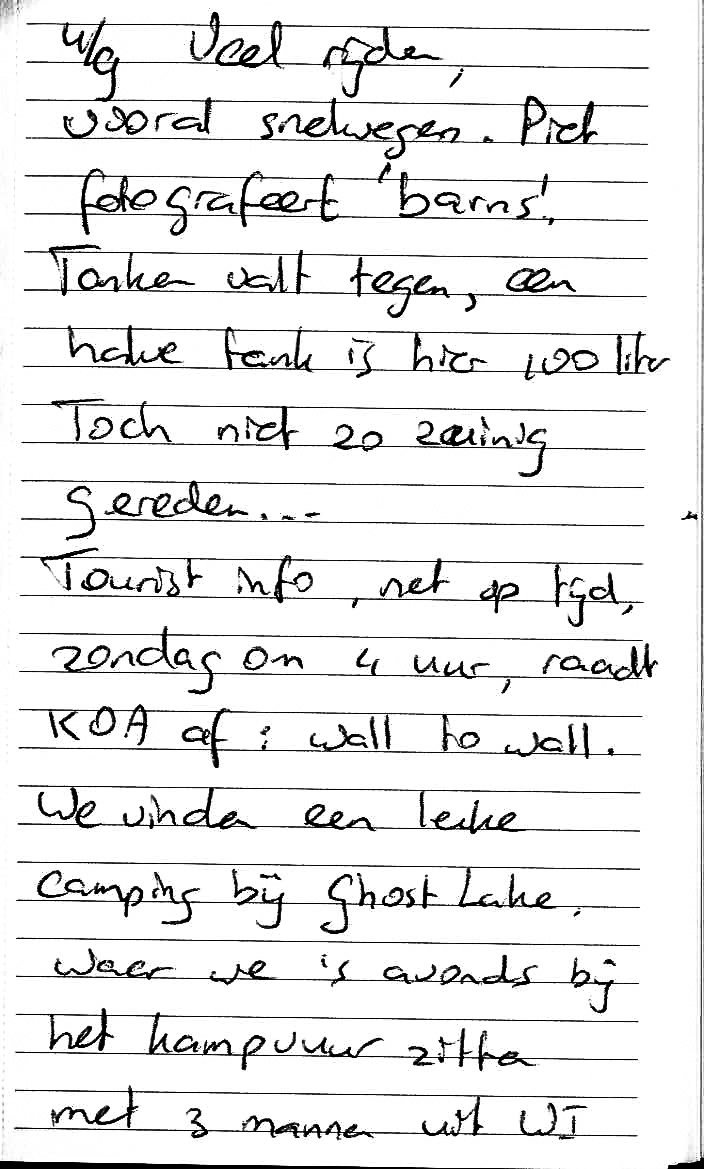 4/9 Veel rijden,
vooral snelwegen. Piet
fotografeert 'barns'.
Tanken valt tegen, een
halve tank is hier 100 liter
Toch niet zo zuinig
gereden...
Tourist info, net op tijd,
zondag om 4 uur, raadt
KOA af: wall to wall.
We vinden een leuke
camping bij Ghost Lake.
waar we 's avonds bij
het kampvuur zitten
met 3 mannen uit WI